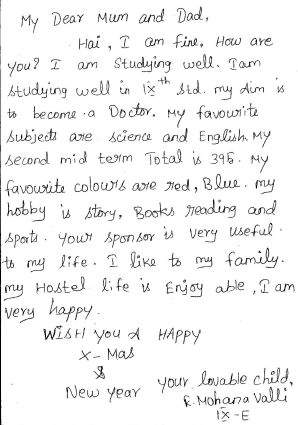 My Dear Mum and Dad,
Hai, I am fine, How are
you? I am Studying well. I am
Studying well in IX th Std. my Aim is
to become a Doctor. My favourite
Subjects are science and English. My
second mid term Total is 396. My
favourite colours are red, Blue. my
hobby is story, Books reading and
sports. your sponsor is very useful
to my life. I like to my family.
my Hostel life is Enjoy able, I am
very happy.
WISH you A HAPPY
X-Mas
&
New year your lovable child,
R. Mohana Valli
IX-E